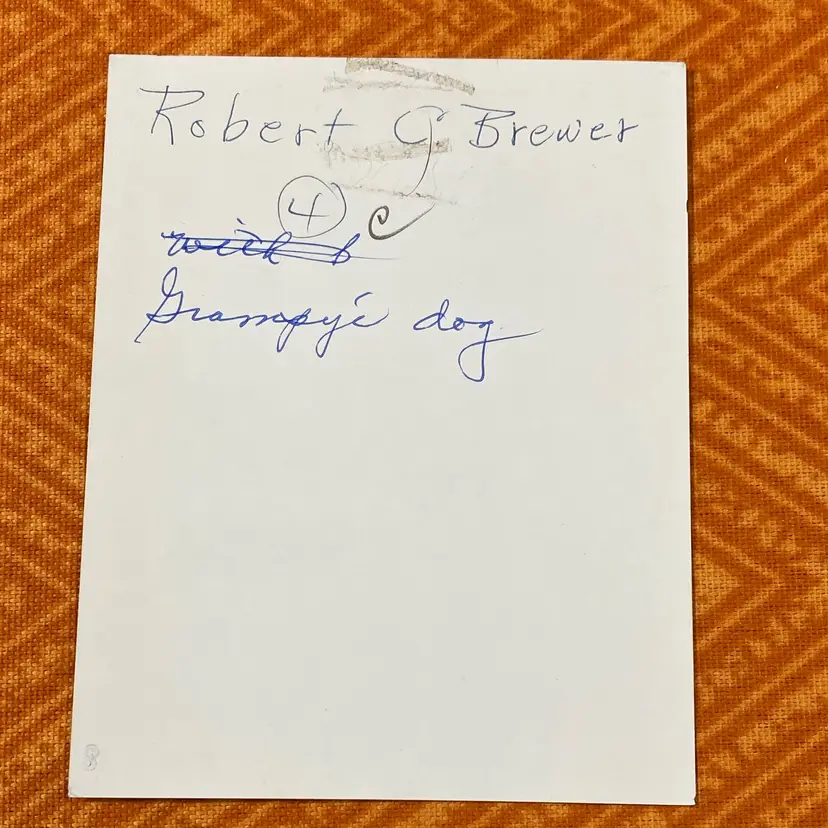 Robert G Brewer
4
with b
Grampy's dog
8